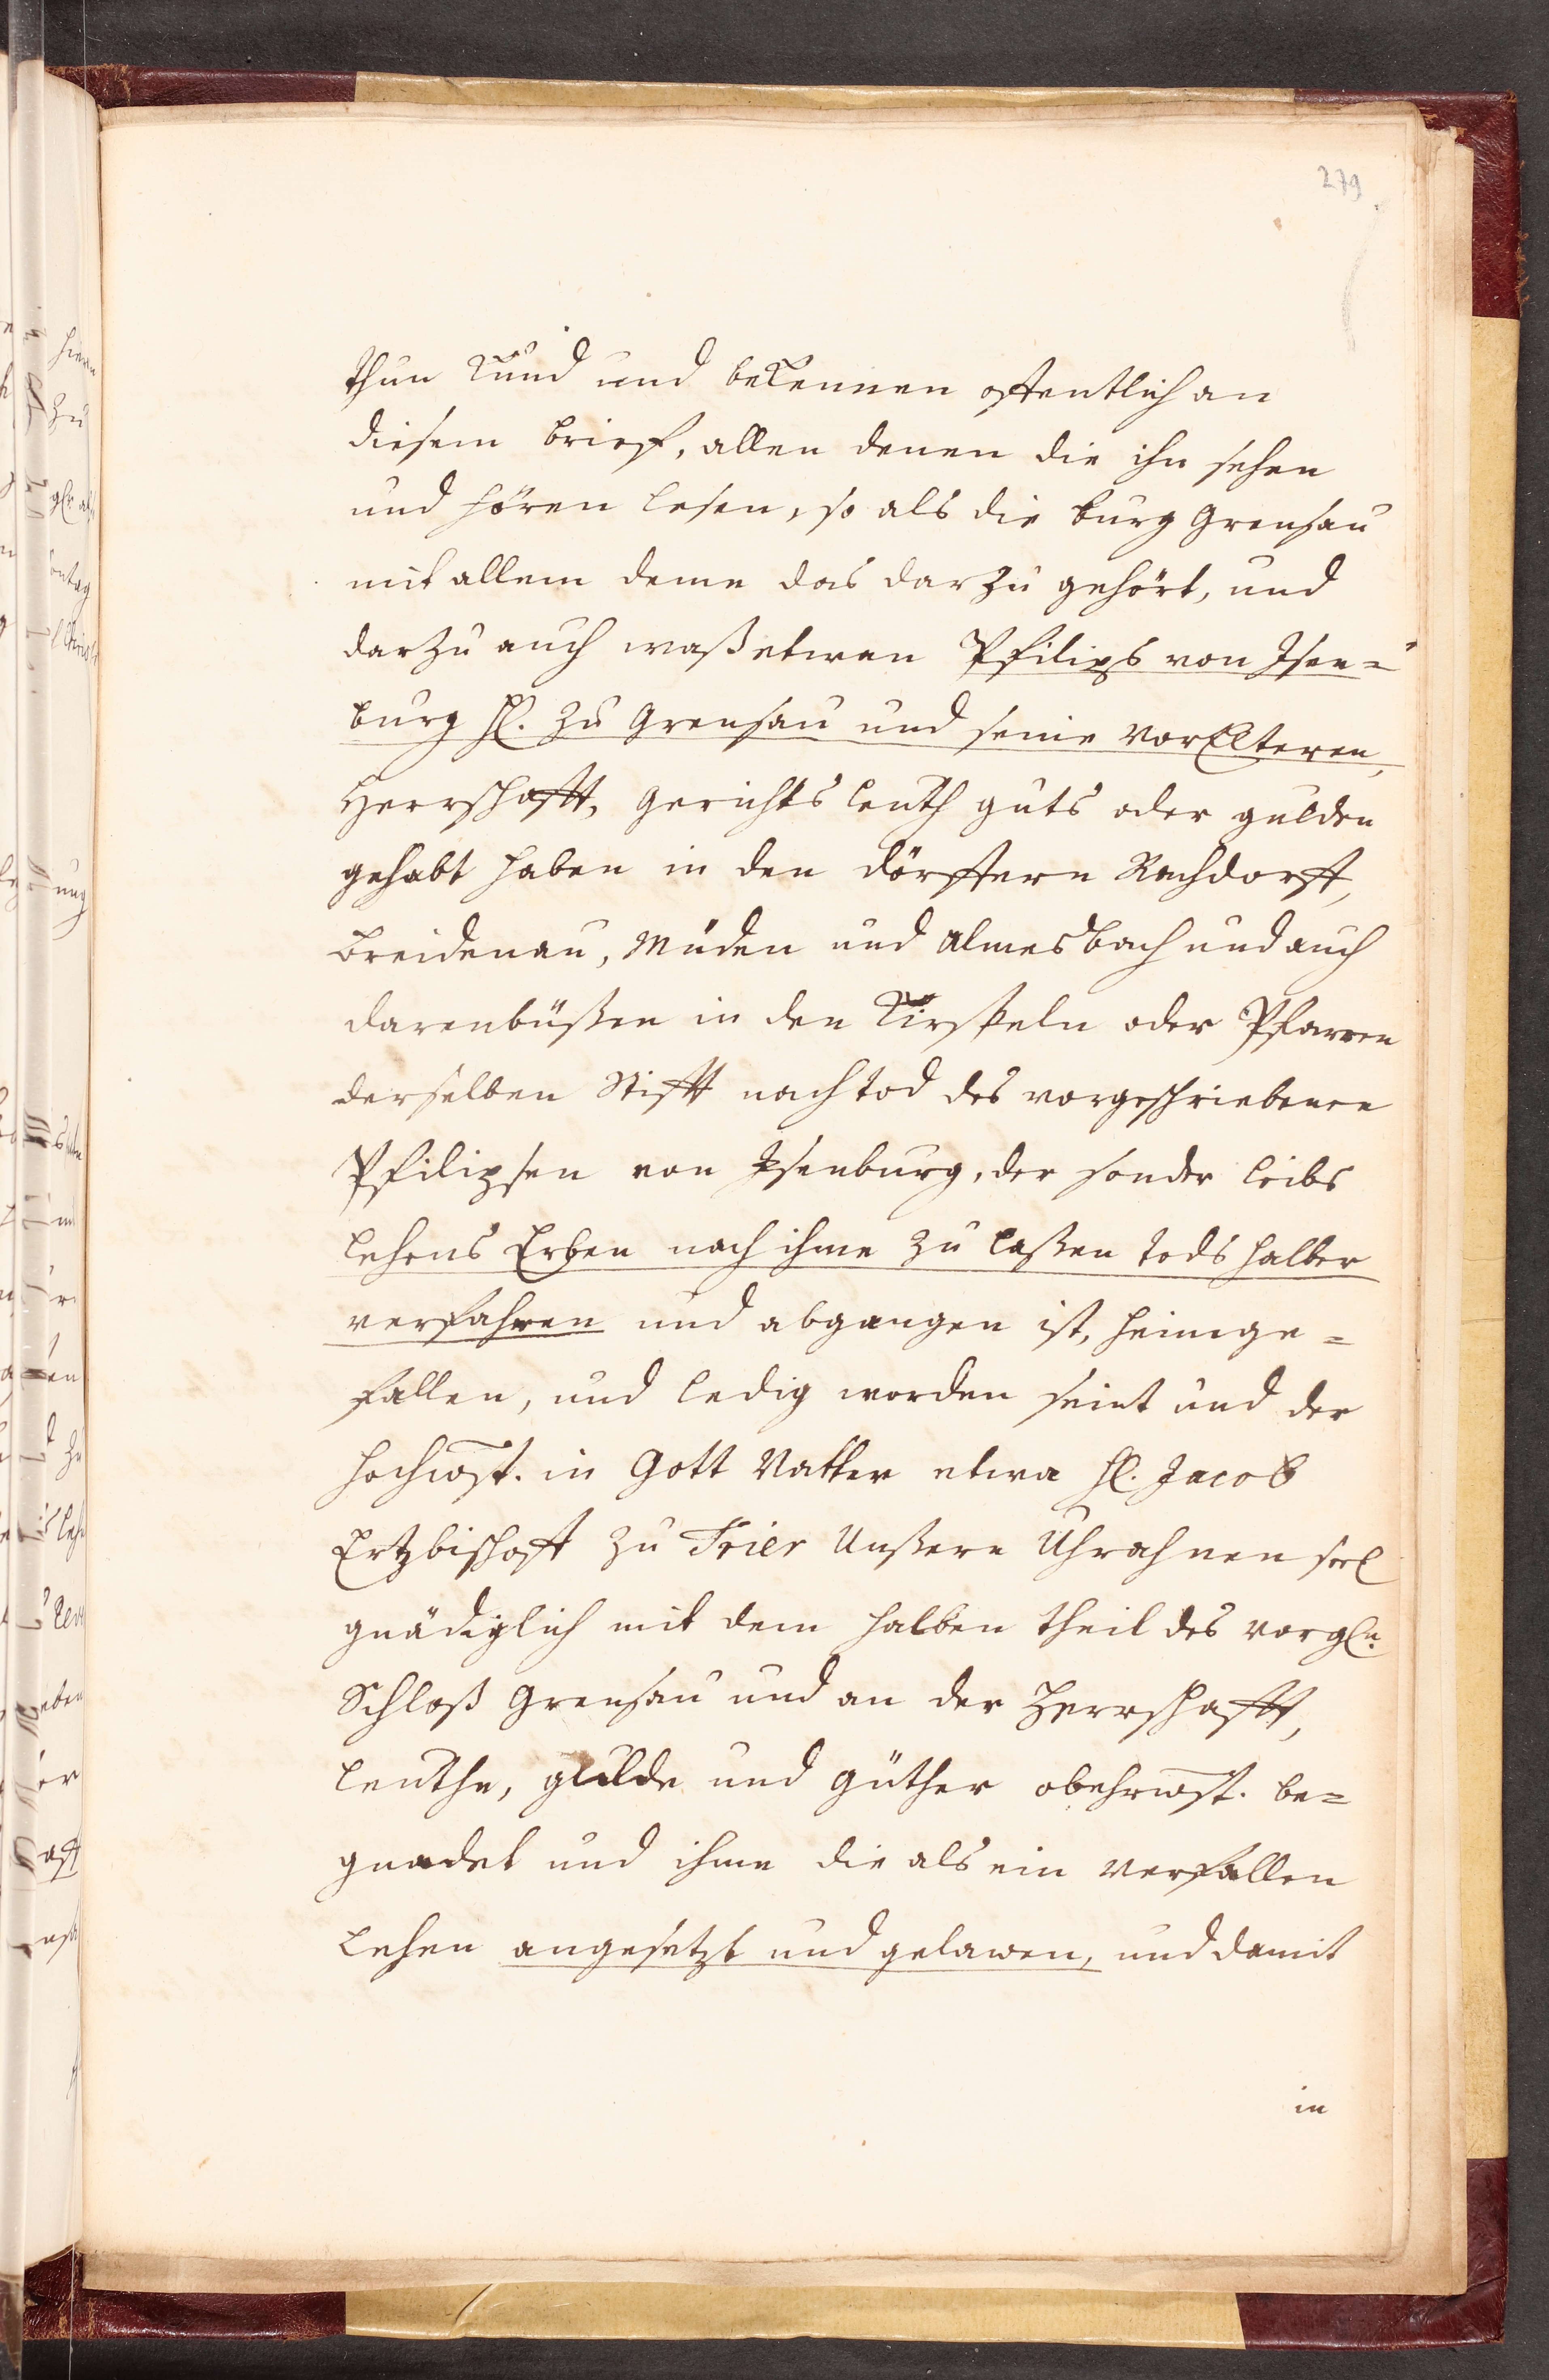 279
thun Kund und bekennen offentlich an
diesem brieff, allen denen die ihn sehen
und hören lesen, so als die burg Grensau
mit allem deme das dar Zu gehört, und
dar Zu auch waß etwan Philips von Isen=
burg H. Zu Grensau und seine vor Elteren,
Herrschafft, gerichts leuth guts oder gulden
gehabt haben in den dörffern Rachdorff,
breidenau, Müden und Almesbach und auch
darenbüßen in den Kirspeln oder Pfarren
derselben Stifft nach tod des vorgeschriebenen
Philipsen von Isenburg, der sonder leibs
lehens Erben nach ihme zu laßen tods halber
verfahren und abgangen ist, heimge=
fallen, und ledig worden seint und der
hochwst. in Gott Vatter etwa H. Jacob
Ertzbischoff zu Trier Unßere Uhrahnen seel
gnädiglich mit dem halben theil des vorgln.
Schloß Grensau und an der Herrschafft,
leuthe, gulde und güther obehrwst. be=
gnadet und ihme die als ein verfallen
lehen angesetzt und gelawen, und damit
in